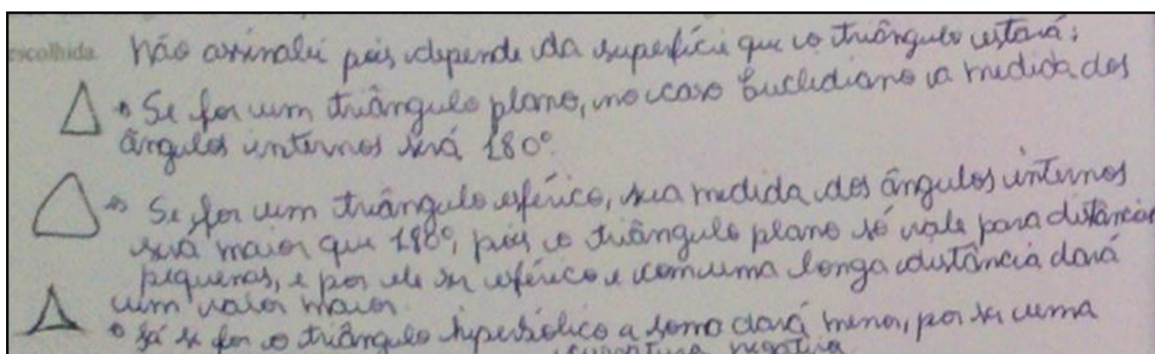 escolhida. Não assinalei pois depende da superfície que o triângulo estará:
Se for um triângulo plano, no caso Euclidiano a medida dos
ângulos internos será 180°.
Se for um triângulo esférico, sua medida dos ângulos internos
será maior que 180°, pois o triângulo plano só vale para distâncias
pequenas, e por ele ser esférico e com uma longa distância dará
um valor maior.
Já se for o triângulo hiperbólico a soma dará menor, por ser uma
curvatura negativa